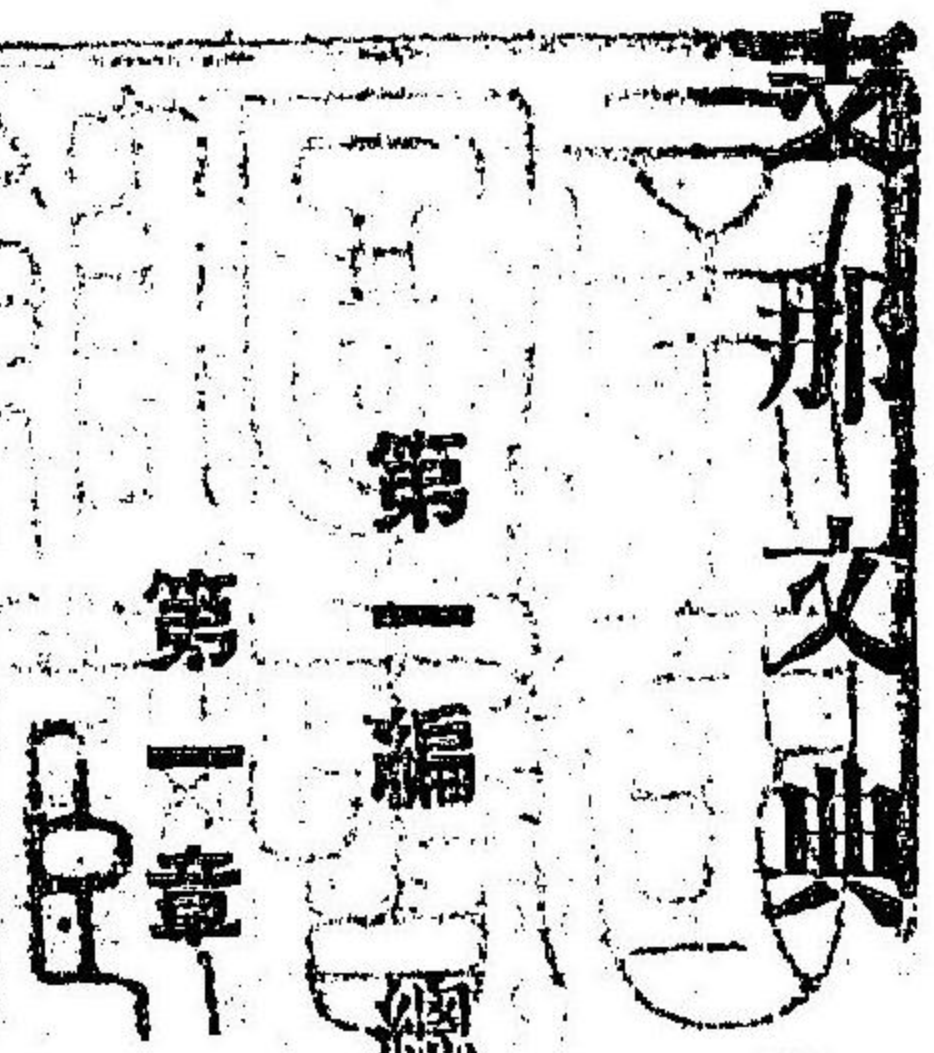 支那文典
第一編
第一章